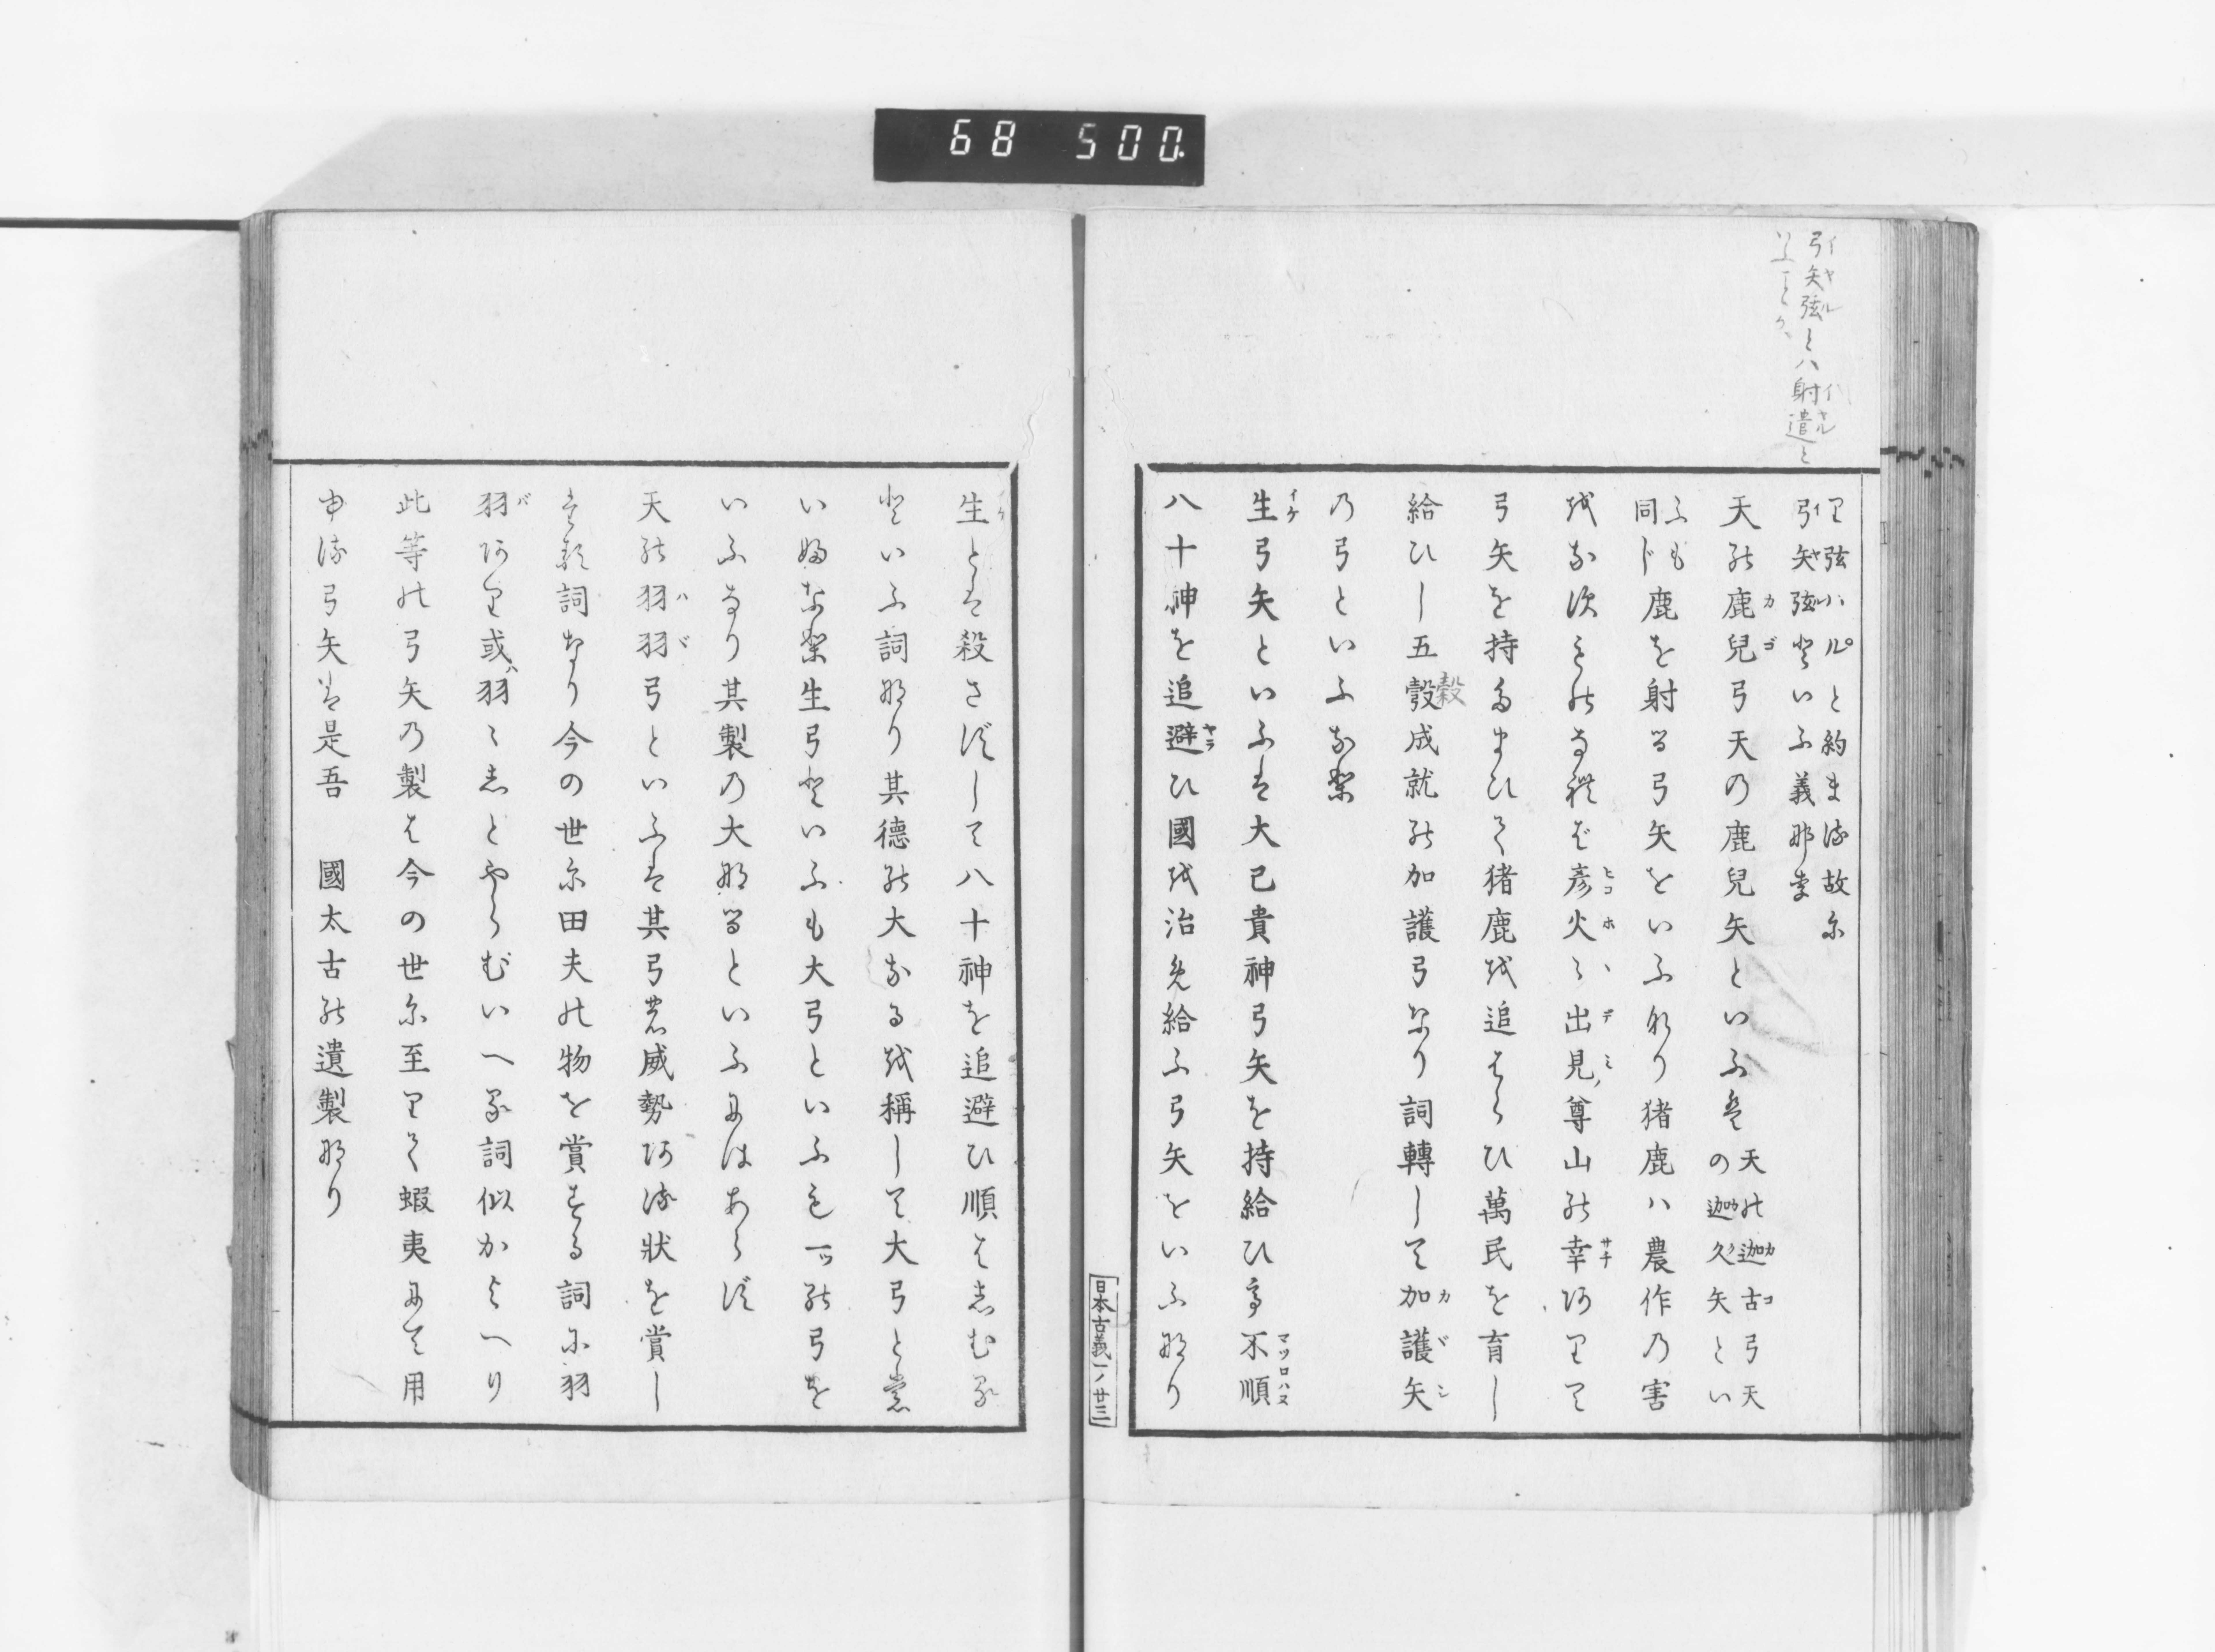 68 500.
弓矢弦とハ射遣と
り弦ハルと約まる故に
弓矢弦といふ義那り
天の鹿兒弓天の鹿兒矢といふは天の迦古弓天
の迦久矢とい
ふも
同じ鹿を射る弓矢をいふなり猪鹿ハ農作乃害
をなすものなれば彦火々出見尊山の幸ありて
弓矢を持たまひて猪鹿を追はらひ萬民を育し
給ひし五穀成就の加護弓なり詞轉して加護矢
乃弓といふなり
生弓矢といふは大已貴神弓矢を持給ひて不順
八十神を追避ひ國を治め給ふ弓矢をいふなり
日本古義一ノ廿三
生とは殺さずして八十神を追避ひ順はしむる
といふ詞なり其德の大なるを稱して大弓と
いふなり生弓といふも大弓といふも一ツの弓を
いふなり其製の大なるといふにはあらず
天の羽羽弓といふは其弓の威勢ある狀を賞し
詞なり今の世に田夫の物を賞する詞に羽
羽あり或羽々しとやらむいへる詞似かよへり
此等の弓矢乃製は今の世に至りて蝦夷にて用
申る弓矢は是吾 國太古の遺製なり